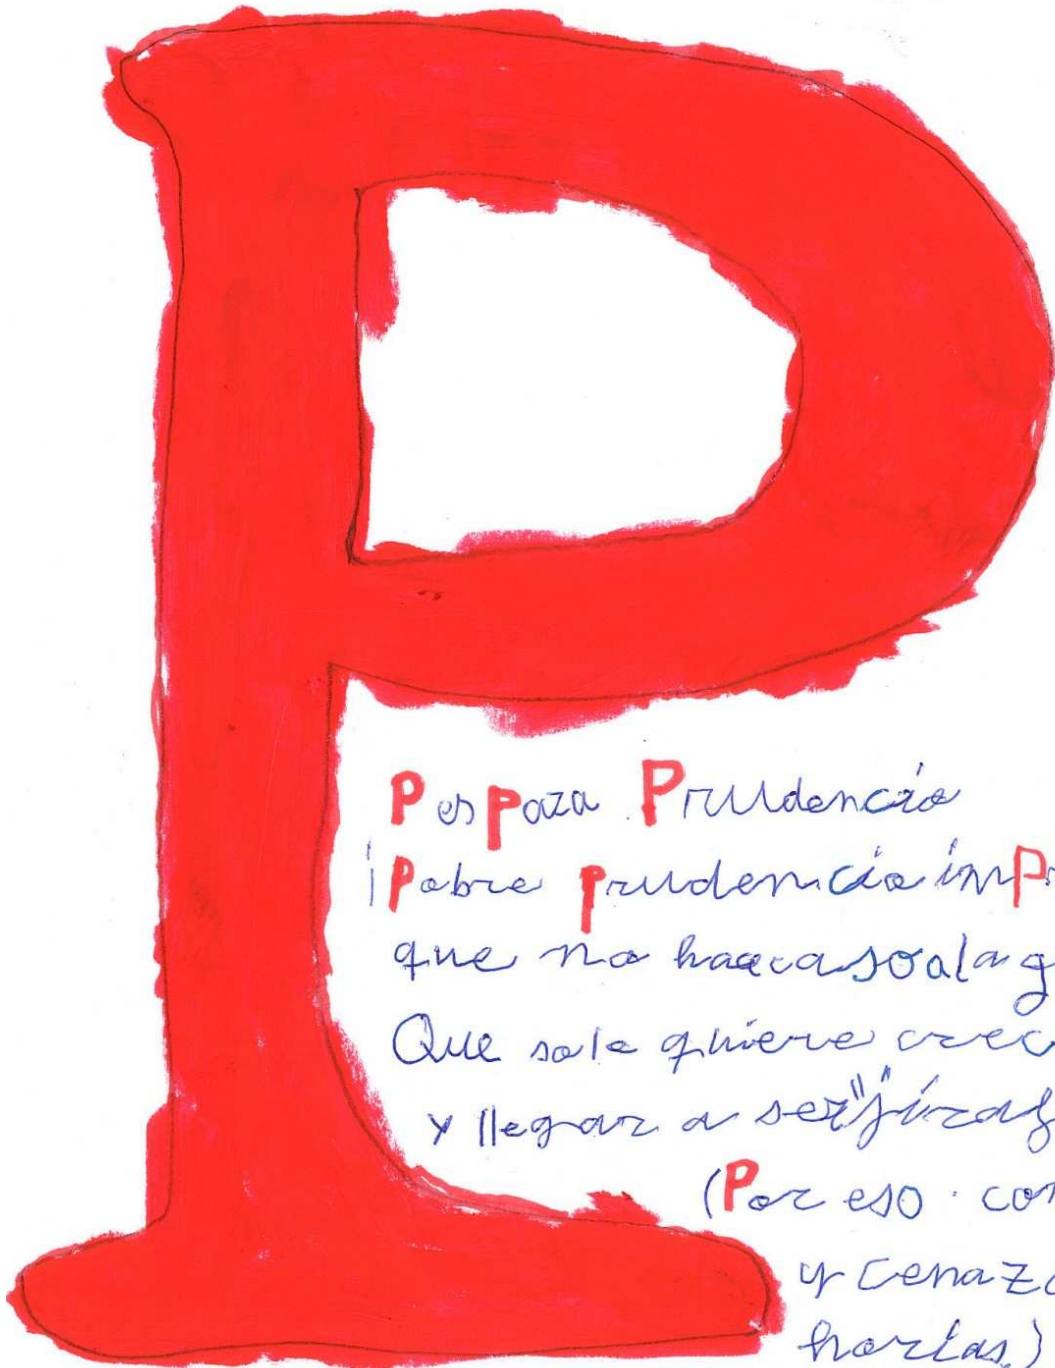 P
P es para Prudencia
¡Pobre prudencia imPr
que no hace caso a la g
Que solo quiere crec
y llegar a ser "jiraf
(Por eso con
y cena za
horias)